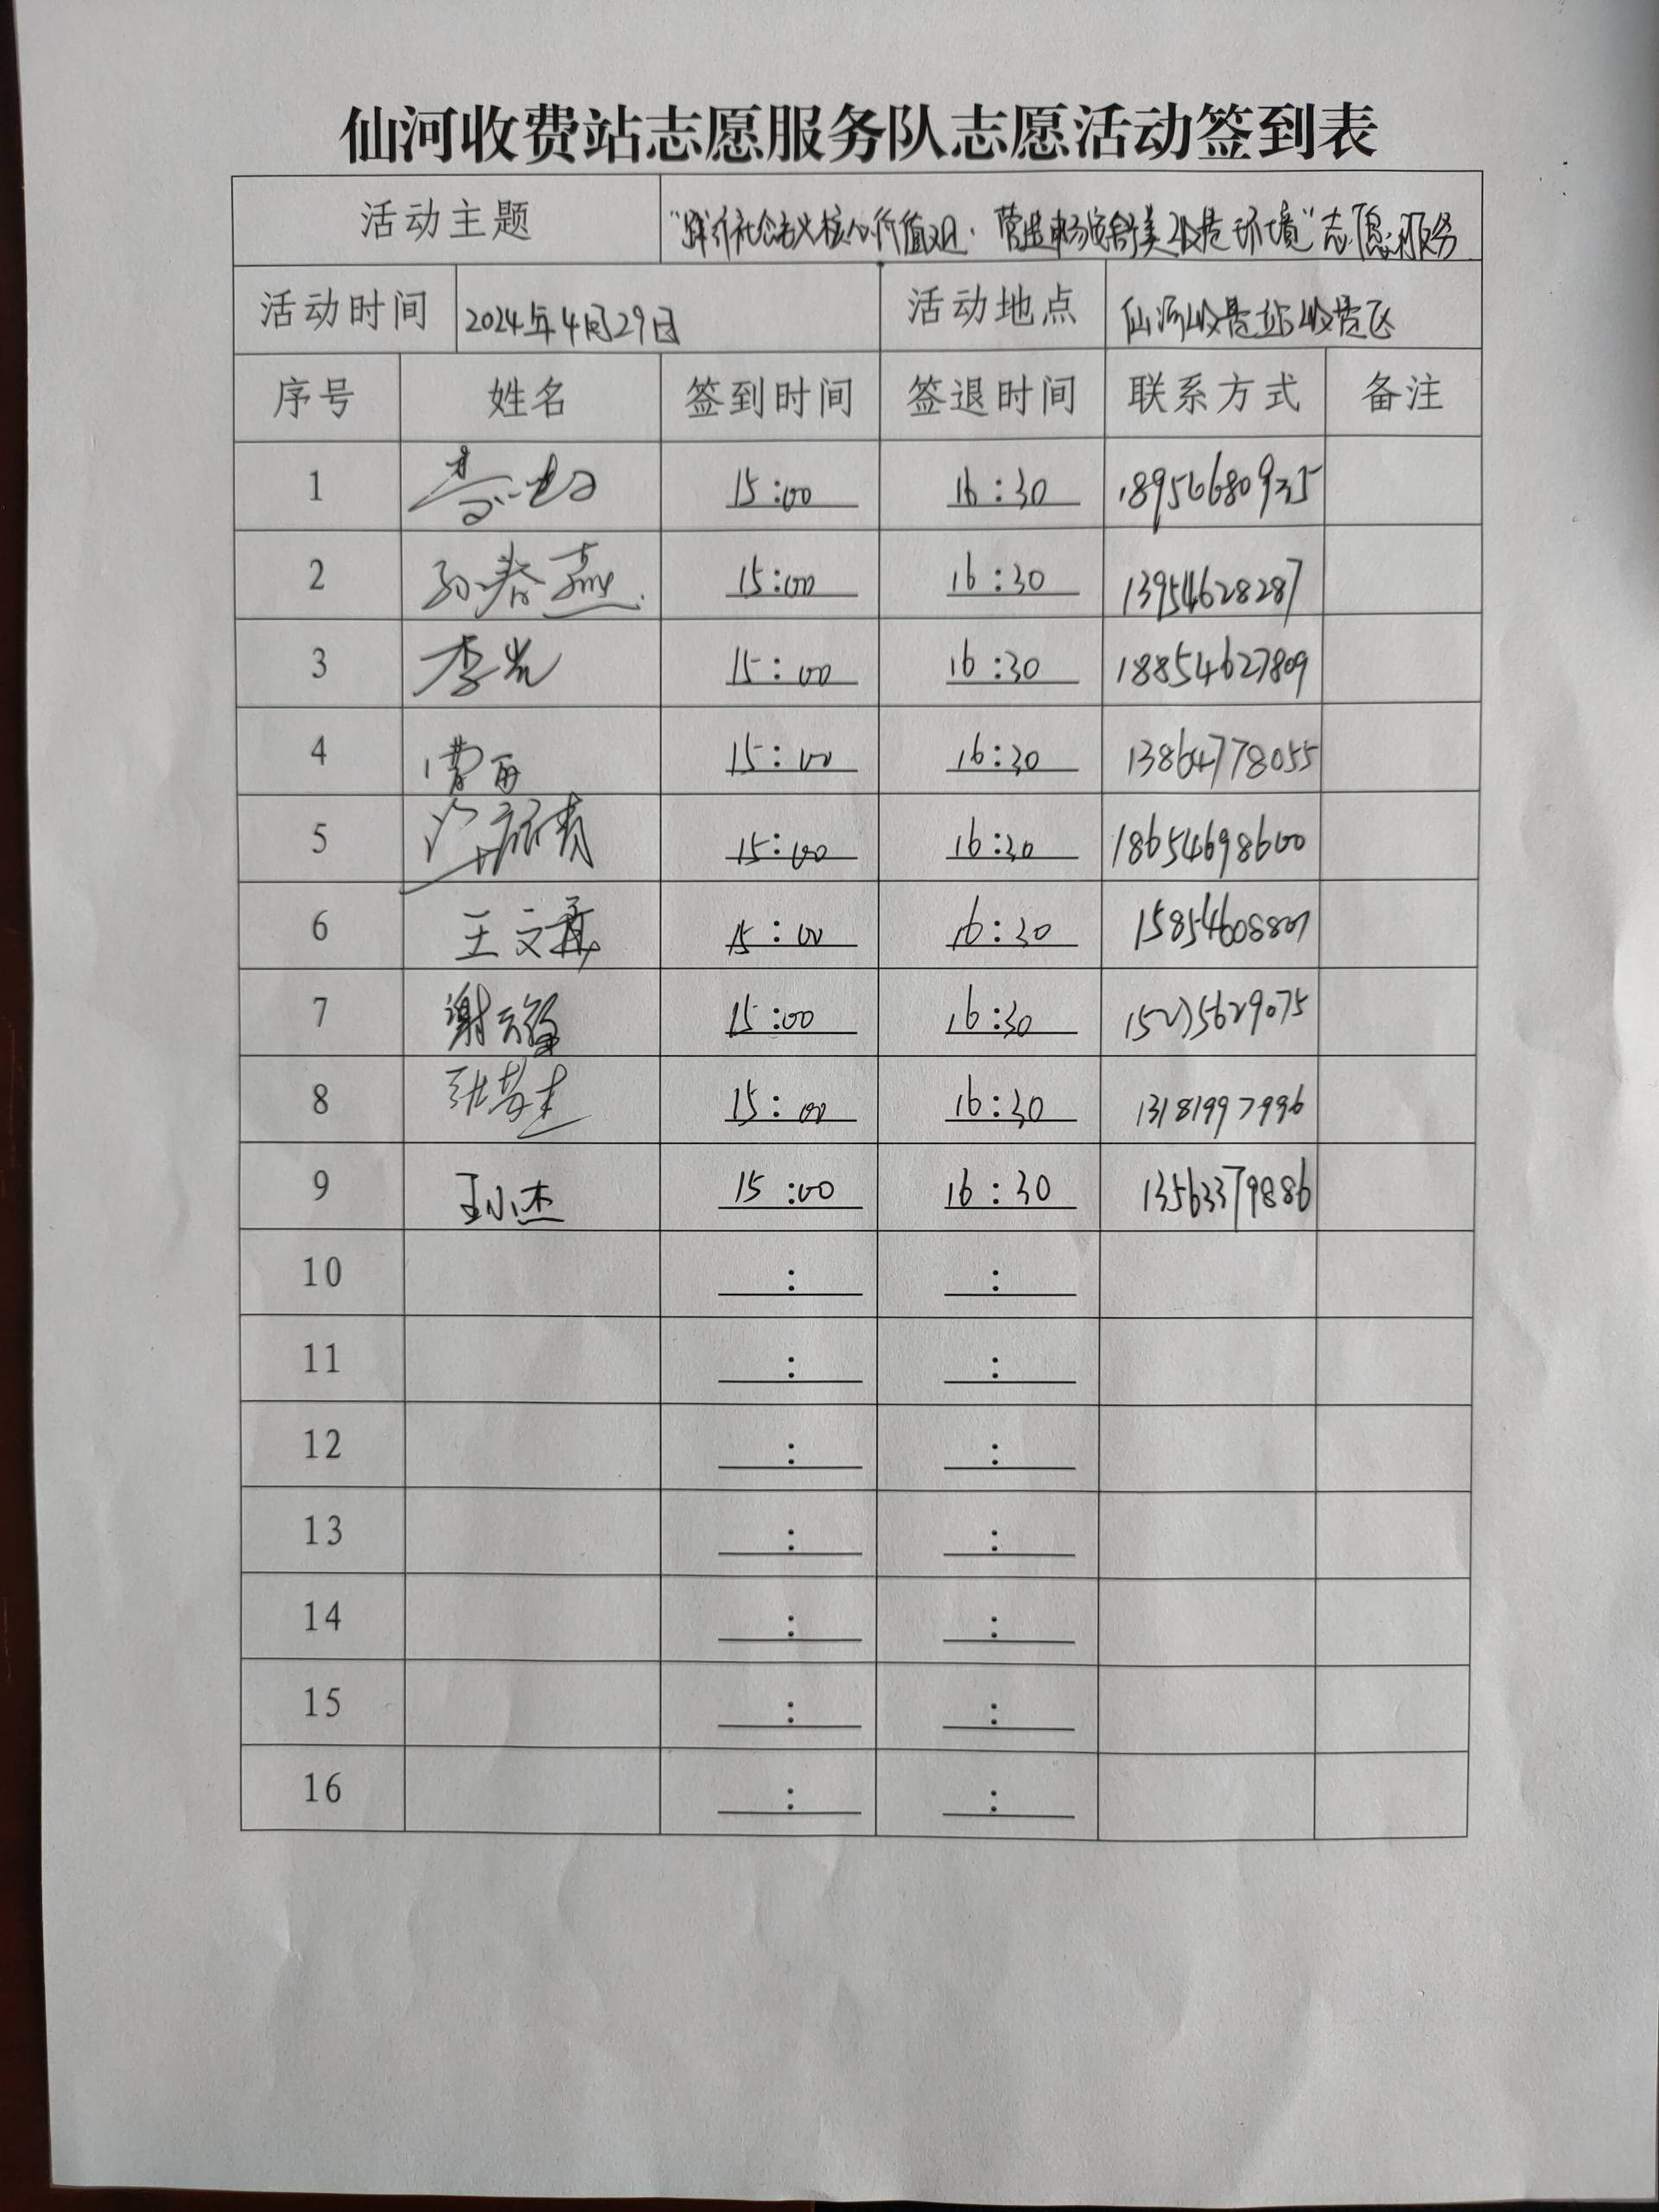 仙河收费站志愿服务队志愿活动签到表
活动主题 “践行社会主义核心价值观·营造畅安舒美收费环境”志愿服务
活动时间 2024年4月29日 活动地点 仙河收费站收费区
序号 姓名 签到时间 签退时间 联系方式 备注
1 15:00 16:30 18956680935
2 孙春燕 15:00 16:30 13954628287
3 李岩 15:00 16:30 18854627809
4 曹丽 15:00 16:30 13864778055
5 15:00 16:30 18654698600
6 王文 15:00 16:30
7 谢 15:00 16:30 15275629075
8 张 15:00 16:30 13181997996
9 王小杰 15:00 16:30 13563379886
10 : :
11 : :
12 : :
13 : :
14 : :
15 : :
16 : :